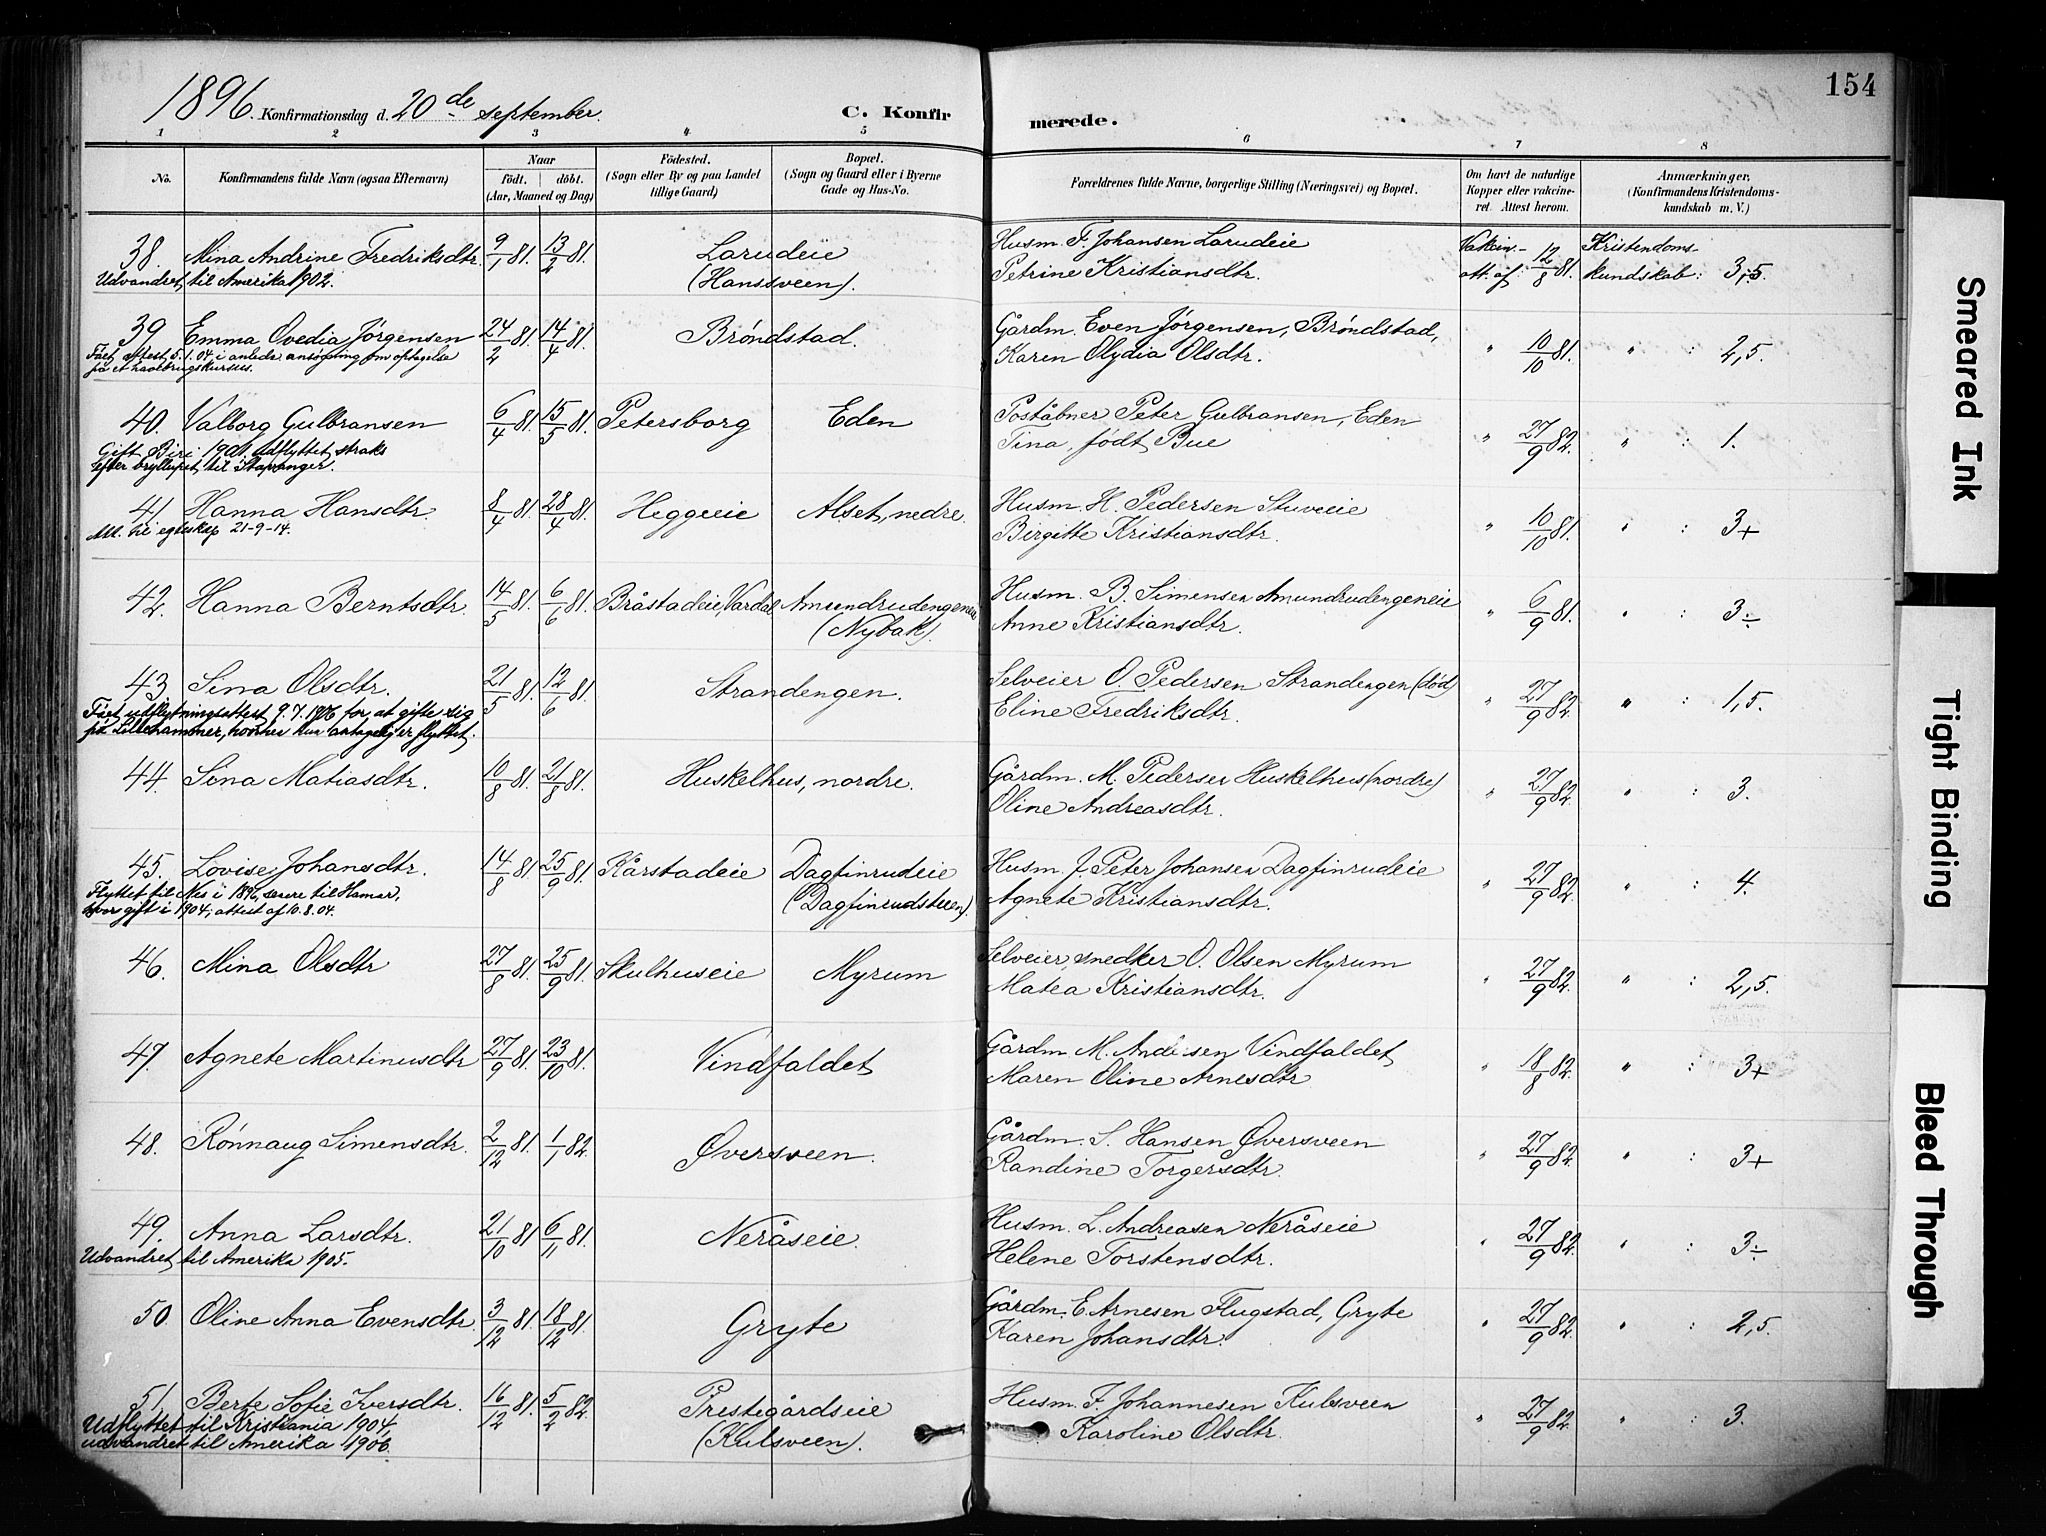 154
1896. Konfirmationsdag d. 20de september.
C. Konfirmerede.
1 2 3 4 5 6 7 8
No.
Konfirmandens fulde Navn (ogsaa Efternavn)
Naar
födt. döbt.
(Aar, Maaned og Dag)
Födested.
(Sogn eller By og paa Landet
tillige Gaard)
Bopæl.
(Sogn og Gaard eller i Byerne
Gade og Hus-No.
Forældrenes fulde Navne, borgerlige Stilling (Næringsvei) og Bopæl.
Om havt de naturlige
Kopper eller vakcine-
ret. Attest herom.
Anmærkninger,
(Konfirmandens Kristendoms-
kundskab m. V.)
38. Mina Andrine Fredriksdtr. 9/1 81. 13/2 81. Larudeie (Hanssveen).
Husm. F. Johansen Larudeie
Petrine Kristiansdtr.
Vakcin.-att. af 12/8 81. Kristendomskundskab: 3,5.
Udvandret til Amerika 1902.
39 Emma Ovedia Jørgensen 24/2 81. 14/4 81. Brøndstad.
Gårdm. Even Jørgensen, Brøndstad,
Karen Olydia Olsdtr.
" 10/10 81. " : 2,5.
Fået attest 5.1.04 i anledn. ansøgning om optagelse
på et havebrugskursus.
40. Valborg Gulbransen 6/4 81. 15/5 81. Petersborg Eden
Poståbner Peter Gulbransen, Eden
Tina, født Bue
" 27/9 82. " : 1.
Gift Biri 1901. Udflyttet straks
efter bryllupet til Stavanger.
41. Hanna Hansdtr. 8/4 81. 28/4 81. Heggeeie Alset, nedre.
Husm. H. Pedersen Stuveeie
Birgitte Kristiansdtr.
" 10/10 81. " : 3+
Att. til egteskap 21-9-14.
42. Hanna Berntsdtr. 14/5 81. 6/6 81. Bråstadeie, Vardal Amundrudengeneie (Nybak).
Husm. B. Simensen Amundrudengeneie
Anne Kristiansdtr.
" 6/9 81. " : 3÷
43. Sina Olsdtr. 21/5 81. 12/6 81. Strandengen.
Selveier O. Pedersen Strandengen (død)
Eline Fredriksdtr.
" 27/9 82. " : 1,5.
Fået udflytningsattest 9.7.1906 for at gifte sig
på Lillehammer, hvorhen hun antagelig er flyttet.
44. Sina Matiasdtr. 10/8 81. 21/8 81. Huskelhus, nordre.
Gårdm. M. Pedersen Huskelhus (nordre)
Oline Andreasdtr.
" 27/9 82. " : 3.
45. Lovise Johansdtr. 14/8 81. 25/9 81. Kårstadeie Dagfinrudeie (Dagfinrudsteen).
Husm. J. Peter Johansen Dagfinrudeie
Agnete Kristiansdtr.
" 27/9 82. " : 4.
Flyttet til Nes i 1896, senere til Hamar,
hvor gift i 1904; attest af 10.8.04.
46. Mina Olsdtr 27/8 81. 25/9 81. Skulhuseie Myrum
Selveier, snedker O. Olsen Myrum
Matea Kristiansdtr.
" 27/9 82. " : 2,5.
47. Agnete Martinusdtr 27/9 81. 23/10 81. Vindfaldet
Gårdm. M. Andersen Vindfaldet
Maren Oline Arnesdtr
" 18/8 82. " : 3+
48. Rønnaug Simensdtr. 2/12 81. 1/1 82. Øversveen.
Gårdm. S. Hansen Øversveen
Randine Torgersdtr.
" 27/9 82. " : 3+
49. Anna Larsdtr. 21/10 81. 6/11 81. Neråseie.
Husm. L. Andreasen Neråseie
Helene Torstensdtr.
" 27/9 82. " : 3÷
Udvandret til Amerika 1905.
50. Oline Anna Evensdtr. 3/12 81. 18/12 81. Gryte
Gårdm. E. Arnesen Flugstad, Gryte
Karen Johansdtr.
" 27/9 82. " : 2,5.
51. Berte Sofie Iversdtr. 16/12 81. 5/2 82. Prestegårdseie (Kulsveen).
Husm. I. Johannesen Kulsveen
Karoline Olsdtr.
" 27/9 82. " : 3.
Udflyttet til Kristiania 1904,
udvandret til Amerika 1906.
Smeared Ink
Tight Binding
Bleed Through